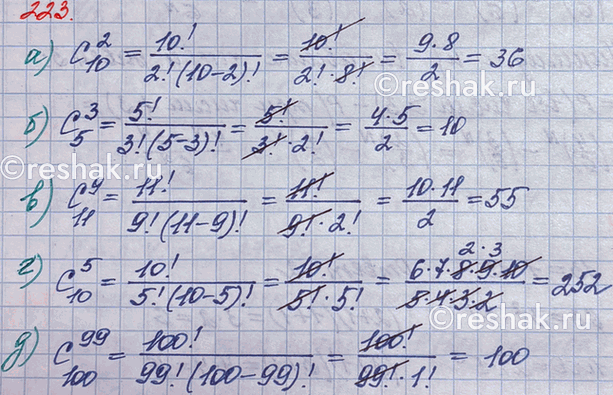 223.
а) C₁₀² = 10! / 2!(10-2)! = 10! / 2!·8! = 9·8 / 2 = 36
б) C₅³ = 5! / 3!(5-3)! = 5! / 3!·2! = 4·5 / 2 = 10
в) C₁₁⁹ = 11! / 9!(11-9)! = 11! / 9!·2! = 10·11 / 2 = 55
г) C₁₀⁵ = 10! / 5!(10-5)! = 10! / 5!·5! = 6·7·8·9·10 / 5·4·3·2 = 252
2·3
д) C₁₀₀⁹⁹ = 100! / 99!(100-99)! = 100! / 99!·1! = 100